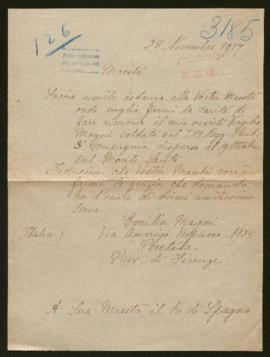 126
3185
28 Novembre 1917
Maestà
Faccio umile istanza alla Vostra Maestà
onde voglia farmi la carità di
fare ricerca il mio marito
Magni soldato nel
3ª Compagnia disperso il
sul Monte Santo
che Vostra Maestà
farmi la grazia che domando
ho l'onore di dirmi umilissima
Serva
Emilia Magni
(Italia) Via Amerigo Vespucci N°
Peretola
Prov. di Firenze
A Sua Maestà il Re di Spagna